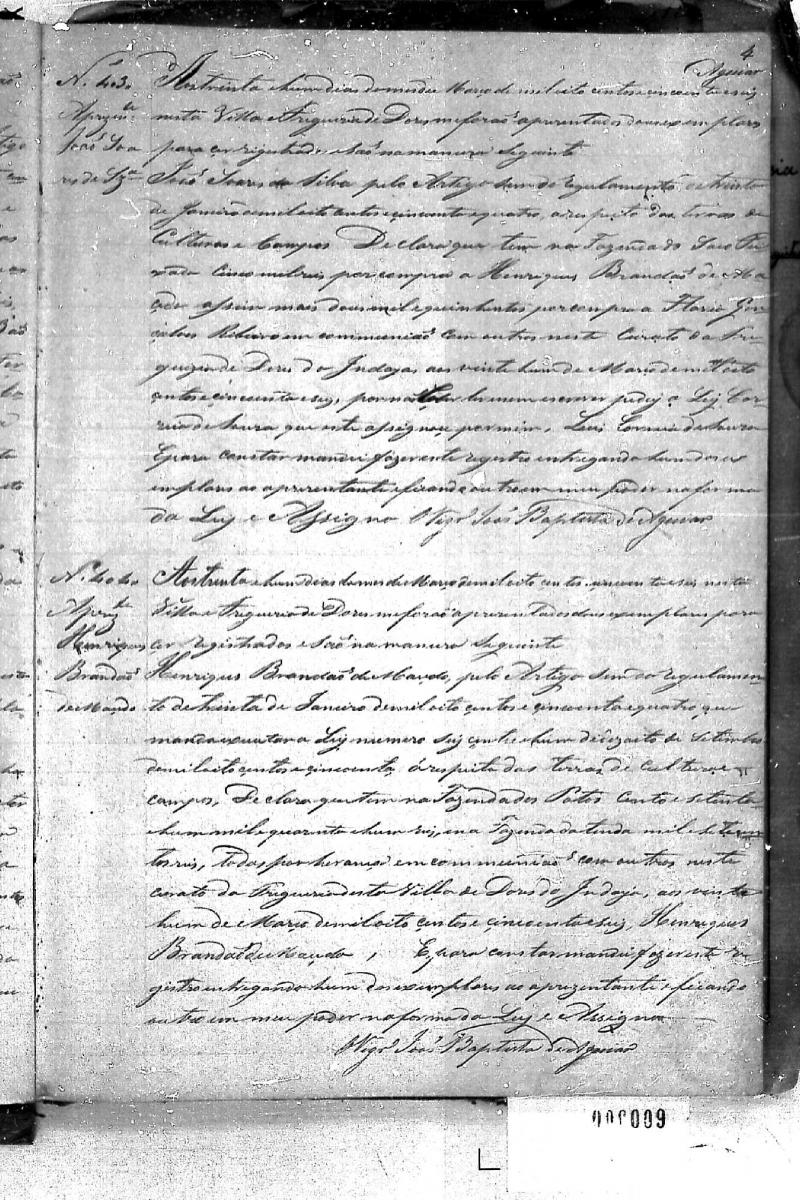 4
Aguiar
N. 403
Aprezte
João Soa
res da Sª
Aos trinta e hum dias do mes de Março de mil oito centos e cincoenta e seis
nesta Villa e Freguezia de Dores me forão aprezentados dous exemplares
para cer rigistrados e são na manera seguinte
João Soares da Silva pelo Artigo sem do regulamento de trinta
de Janeiro de mil oito centos e cincoenta e quatro, a respeito das terras de
Culturas e Campos Declara que tem na Fazenda do Saco
cinco mil reis por compra a Henriques Brandão de Ma
cedo assim mais dous mil e quinhentos por compra a Flavio Gon
calves Ribeiro em communião com outros neste Curato da Fre
guezia de Dores do Indaja, aos vinte hum de Março de mil oito
centos e cincoenta e seis, por não ler nem escrever pedi a Luis Cor
reia de Soura que este assignou por mim, Luis Correia de Soura
E para constar mandei fazer este rigestro entregando hum dos ex
emplares ao aprezentante e ficando outro em meu poder na forma
da Ley e Assigno O Vigrº João Baptista de Aguiar
N. 404
Aprezte
Henriques
Brandão
de Maçedo
Aos trinta e hum dias do mes de Março de mil oito centos cincoenta e seis nesta
Villa e Freguezia de Dores me forão aprezentados dous exemplares para
cer registrados e são na manera seguinte
Henriques Brandão de Macedo, pelo Artigo sem do regulamen
to de trinta de Janeiro de mil oito centos e cincoenta e quatro, que
manda executar a Ley numero seis centos e hum de dezoito de Setembro
de mil oito centos e cincoenta á respeito das terras de cultura e
campos, Declara que tem na Fazenda dos Patos cento e setenta
e hum mil e quarenta e hum reis, e na Fazenda da tenda mil e setecen
tos reis, todas por herança em communião com outros neste
curato da Freguezia desta Villa de Dores do Indaja, aos vinte
hum de Março de mil oito centos e cincoenta e seis, Henriques
Brandão de Macedo, E para constar mandei fazer este re
gistro entregando hum dos exemplares ao aprezentante e ficando
outro em meu poder na forma da Ley e Assigno
O Vigrº João Baptista de Aguiar
000009